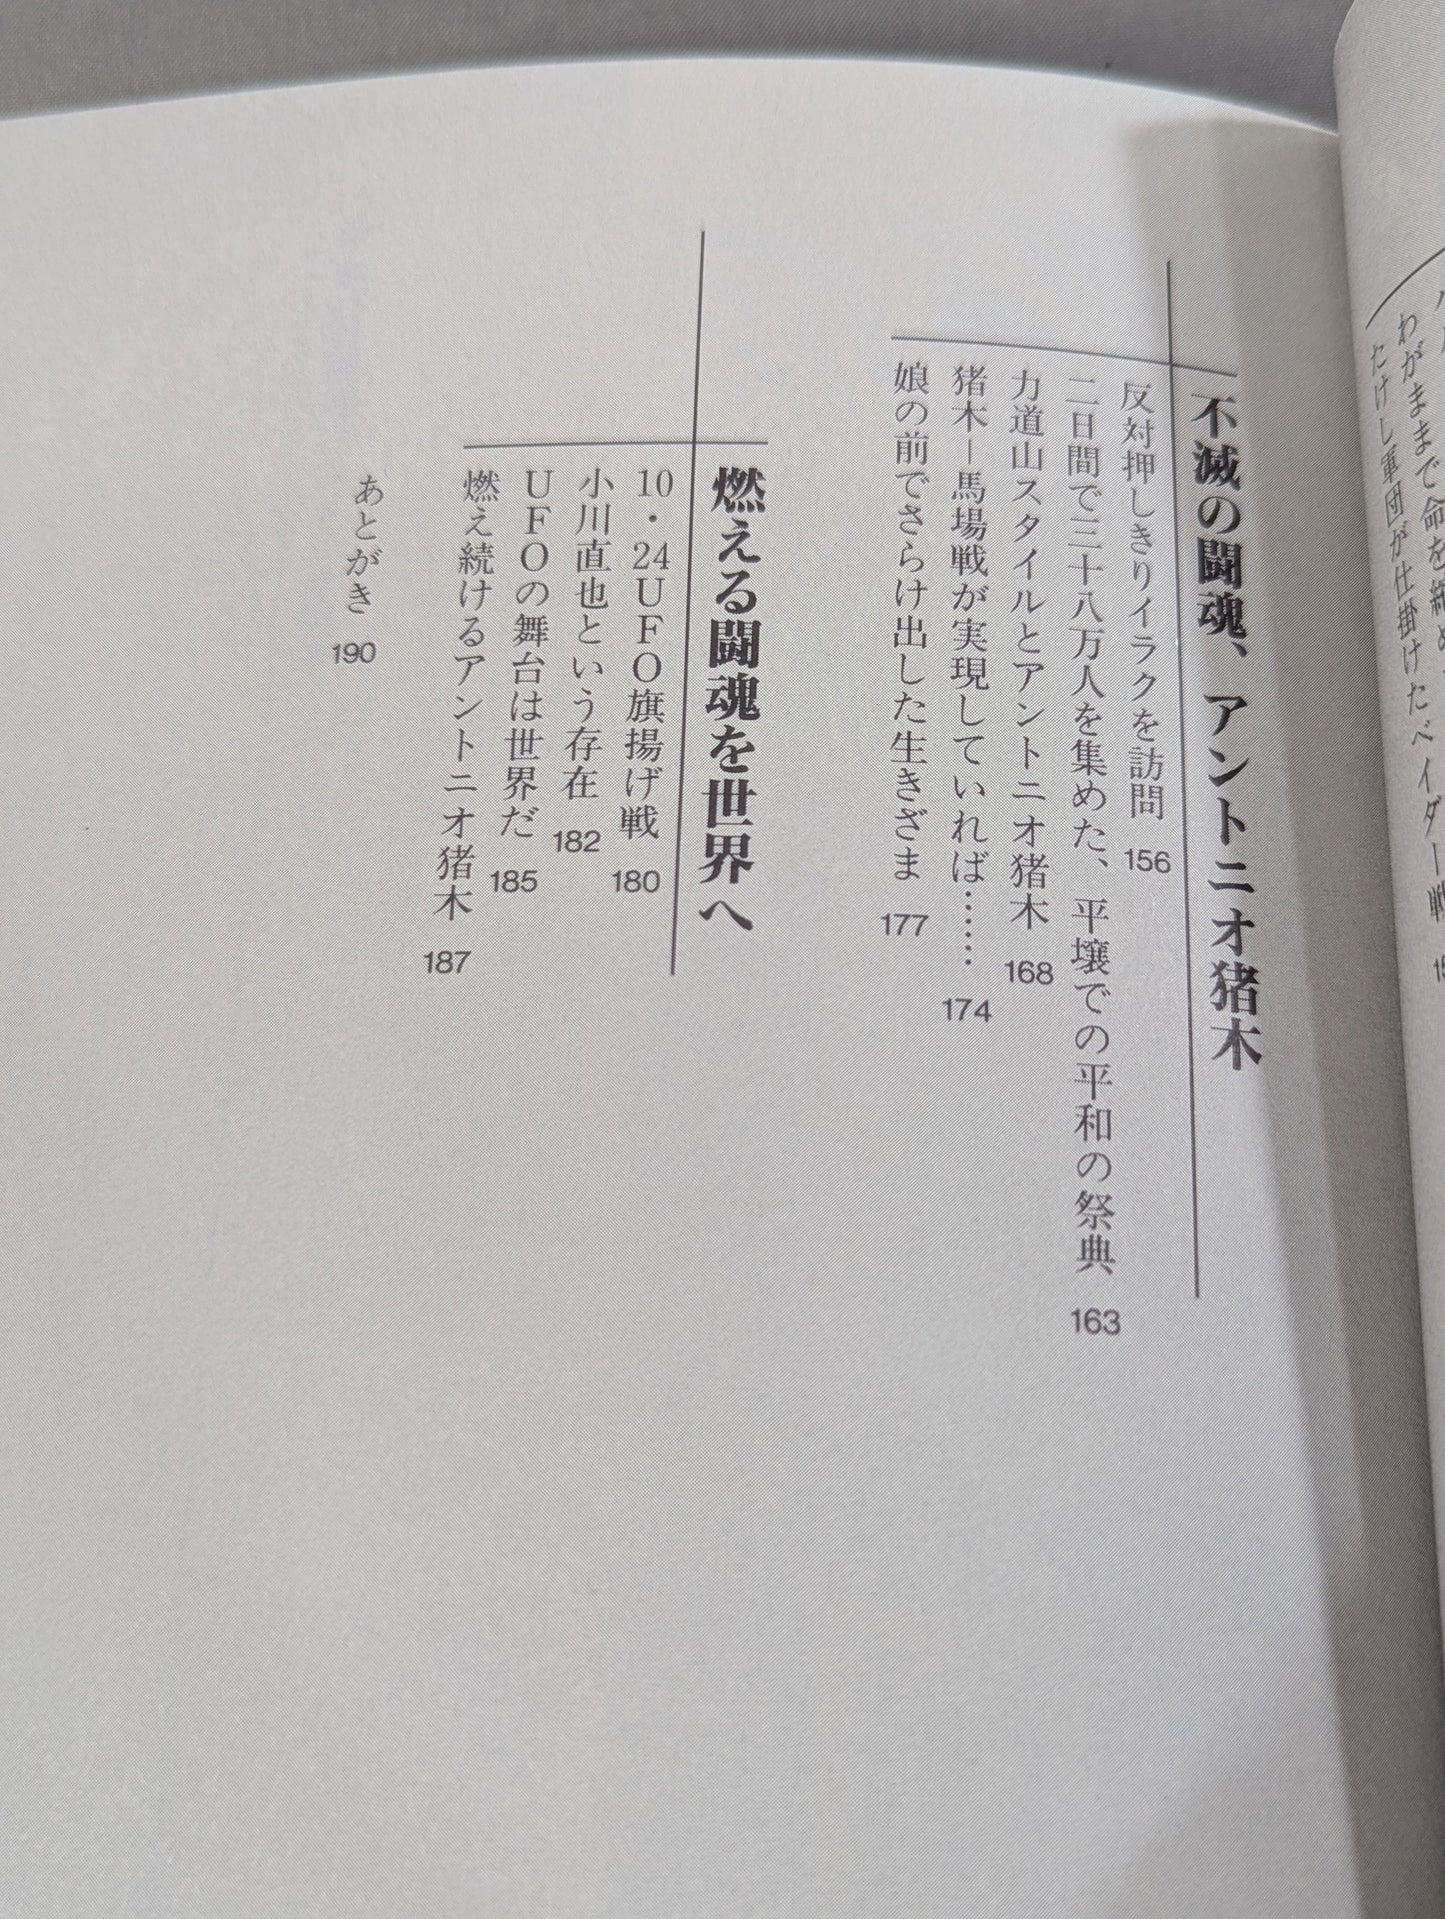 わがままで命を縮め
たけし軍団が仕掛けたベイダー戦
不滅の闘魂、アントニオ猪木
反対押しきりイラクを訪問 156
二日間で三十八万人を集めた、平壌での平和の祭典 163
力道山スタイルとアントニオ猪木 168
猪木―馬場戦が実現していれば…… 174
娘の前でさらけ出した生きざま 177
燃える闘魂を世界へ
10・24UFO旗揚げ戦 180
小川直也という存在 182
UFOの舞台は世界だ 185
燃え続けるアントニオ猪木 187
あとがき 190